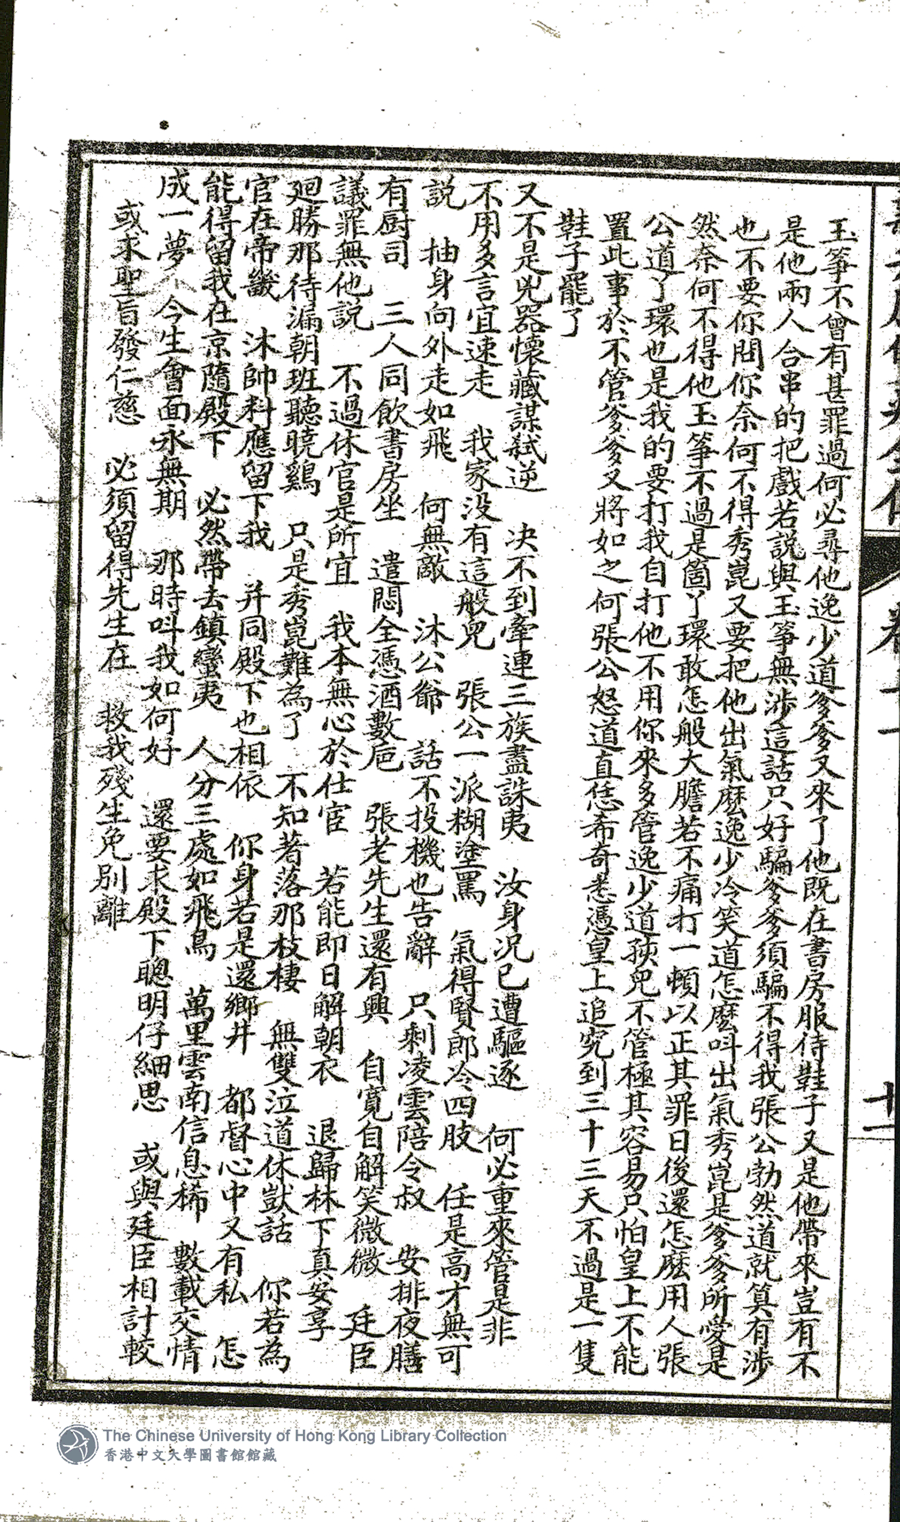 玉箏不曾有甚罪過何必尋他逸少道爹爹又來了他既在書房服侍鞋子又是他帶來豈有不
是他兩人合串的把戲若說與玉箏無涉這話只好騙爹爹須騙不得我張公勃然道就算有涉
也不要你問你奈何不得秀崑又要把他出氣麽逸少冷笑道怎麽叫出氣秀崑是爹爹所愛是
然奈何不得他玉箏不過是箇丫環敢怎般大膽若不痛打一頓以正其罪日後還怎麽用人張
公道丫環也是我的要打我自打他不用你來多管逸少道孩兒不管極其容易只怕皇上不能
置此事於不管爹爹又將如之何張公怒道直恁希奇悉憑皇上追究到三十三天不過是一隻
鞋子罷了
又不是兇器懷藏謀弒逆　決不到牽連三族盡誅夷　汝身况已遭驅逐　何必重來管是非
不用多言宜速走　我家没有這般兒　張公一派糊塗罵　氣得賢郎冷四肢　任是高才無可
説　抽身向外走如飛　何無敵　沐公爺　話不投機也告辭　只剩凌雲陪令叔　安排夜膳
有厨司　三人同飲書房坐　遣悶全憑酒數巵　張老先生還有興　自寬自解笑微微　廷臣
議罪無他説　不過休官是所宜　我本無心於仕宦　若能即日解朝衣　退歸林下真妥享
廻勝那待漏朝班聽曉鷄　只是秀崑難為了　不知著落那枝棲　無雙泣道休獃話　你若為
官在帝畿　沐帥料應留下我　并同殿下也相依　你身若是還鄉井　都督心中又有私　怎
能得留我在京隨殿下　必然帶去鎮蠻夷　人分三處如飛鳥　萬里雲南信息稀　數載交情
成一夢　今生會面永無期　那時呌我如何好　還要求殿下聰明仔細思　或與廷臣相計較
或求聖旨發仁慈　必須留得先生在　救我殘生免別離
卷十一
十一
The Chinese University of Hong Kong Library Collection
香港中文大學圖書館館藏